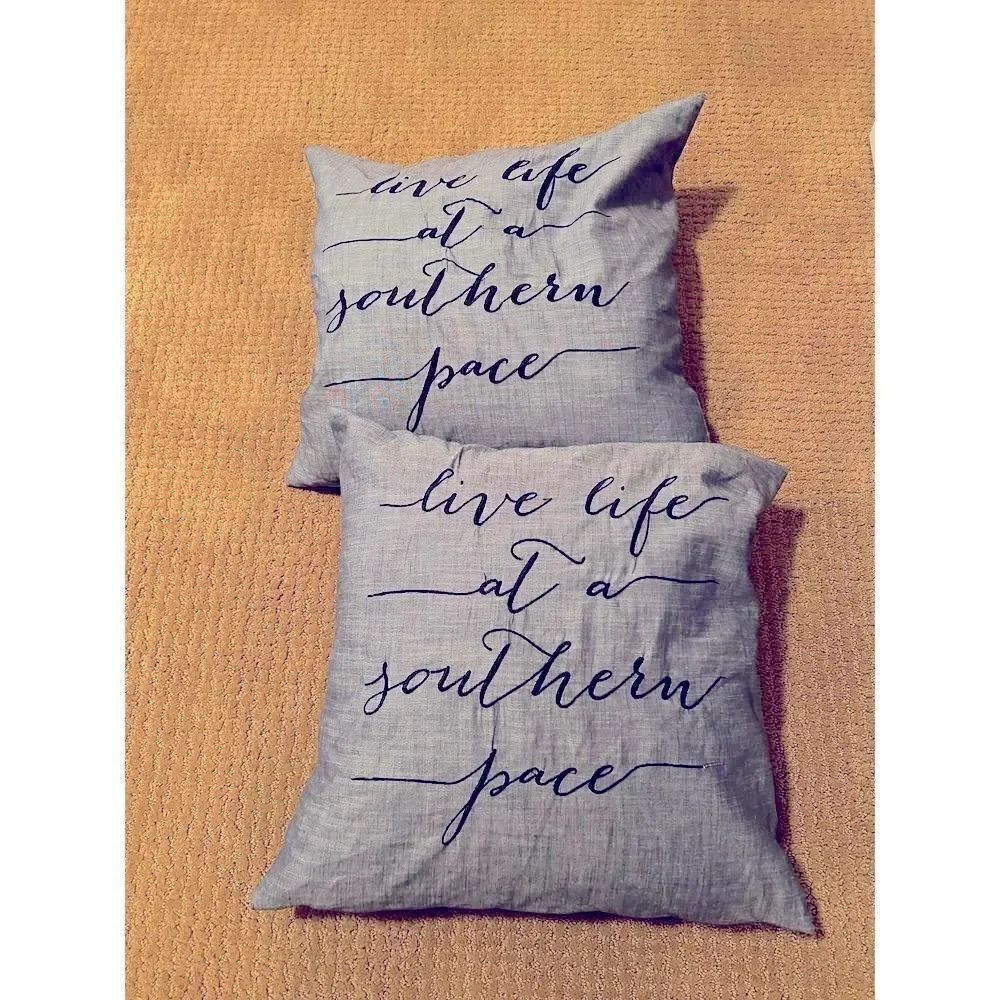 live life
at a
southern
pace
live life
at a
southern
pace